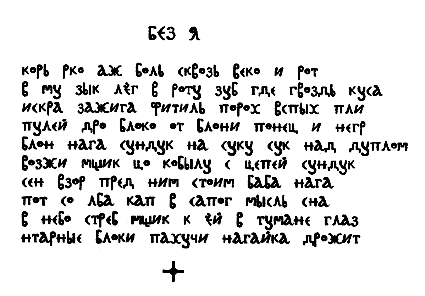 БЕЗ Я
корь рко аж боль сквозь веко и рот
в му зык лёг в роту зуб где гвоздь куса
искра зажига фитиль порох вспых пли
пулей дро блоко от блони понец и негр
блон нага сундук на суку сук над дуплом
возжи мщик що кобылу с цепей сундук
сен взор пред ним стоим баба нага
пот со лба кап в сапог мысль сна
в небо стреб мщик к ей в тумане глаз
нтарные блоки пахучи нагайка дрожит